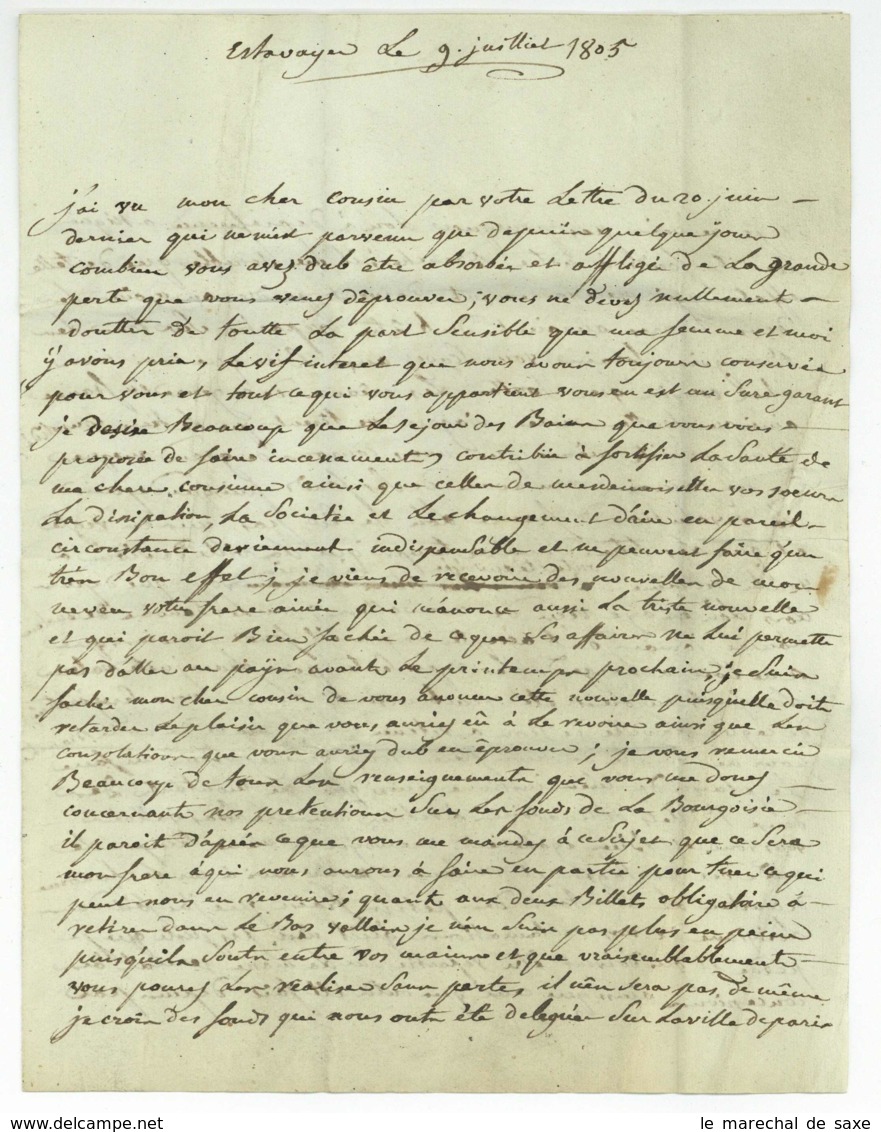 Estavayer Le 9. juilliet 1805
j'ai vu mon cher cousin par votre Lettre du 20. juin
dernier qui ne m'est parvenu que depuis quelque jour
Combien vous avez dub être absorbée et affligé de La grande
perte que vous venes d'êprouver; vous ne devez nullement
doutter de toutte La part Sensible que ma femme et moi
y avons pris, Le vif interet que nous avons toujours conservée
pour vous et tout ce qui vous appartient vous en est un Sure garant
je desire Beaucoup que Le sejour des Bains que vous vous
proposée de faire incesament, contribue à fortifier La Santé de
ma chere cousinne ainsi que celles de mesdemoiselles vos soeurs
La dissipation, La Societée et Le changement d'aire en pareil
circonstance deviennent indispensable et ne peuvent faire qu'un
très Bon effet; je viens de recevoire des nouvelles de mon
neveu votre frere ainée qui m'anonce aussi La triste nouvelle
et qui paroit Bien fachée de ce que Ses affaires ne Lui permette
pas d'aller au païs avant Le printemps prochain; je Suis
faché mon cher cousin de vous anoncer cette nouvelle puisqu'elle doit
retarder Le plaisir que vous auriez eû à Le revoire ainsi que Les
Consolations que vous auriez dub en êprouver; je vous remercie
Beaucoup de tous Les renseignements que vous me donez
concernants nos pretentions Sur Les fonds de La Bourgoisie
il paroit d'après ce que vous me mandez à ce Sujet que ce Sera
mon frere à qui nous aurons à faire en partie pour tirer ce qui
peut nous en revenire; quant aux deux Billets obligatoire à
retirer dans Le Bas vallais je n'en Suis pas plus en peine
puisqu'ils Sonts entre vos mains et que vraisemblablement
vous pourez Les realiser Sans pertes, il n'en sera pas de même
je crois des fonds qui nous onts été deleguér Sur La ville de paris
le marechal de saxe